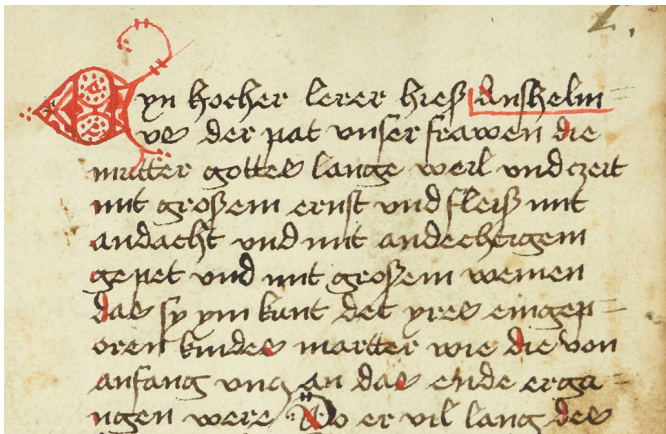 Eyn hocher lerer hieß anshelm
us der pat vnser frawen die
mutter gottes lange weyl vnd czeit
mit großem ernst vnd fleiß mit
andacht vnd mit andechtigem
gepet vnd mit großem weinen
das sy ym kunt det yres eingep=
oren kindes martter wie die von
anfang vncz an das ende erga=
ngen were Do er vil lang des